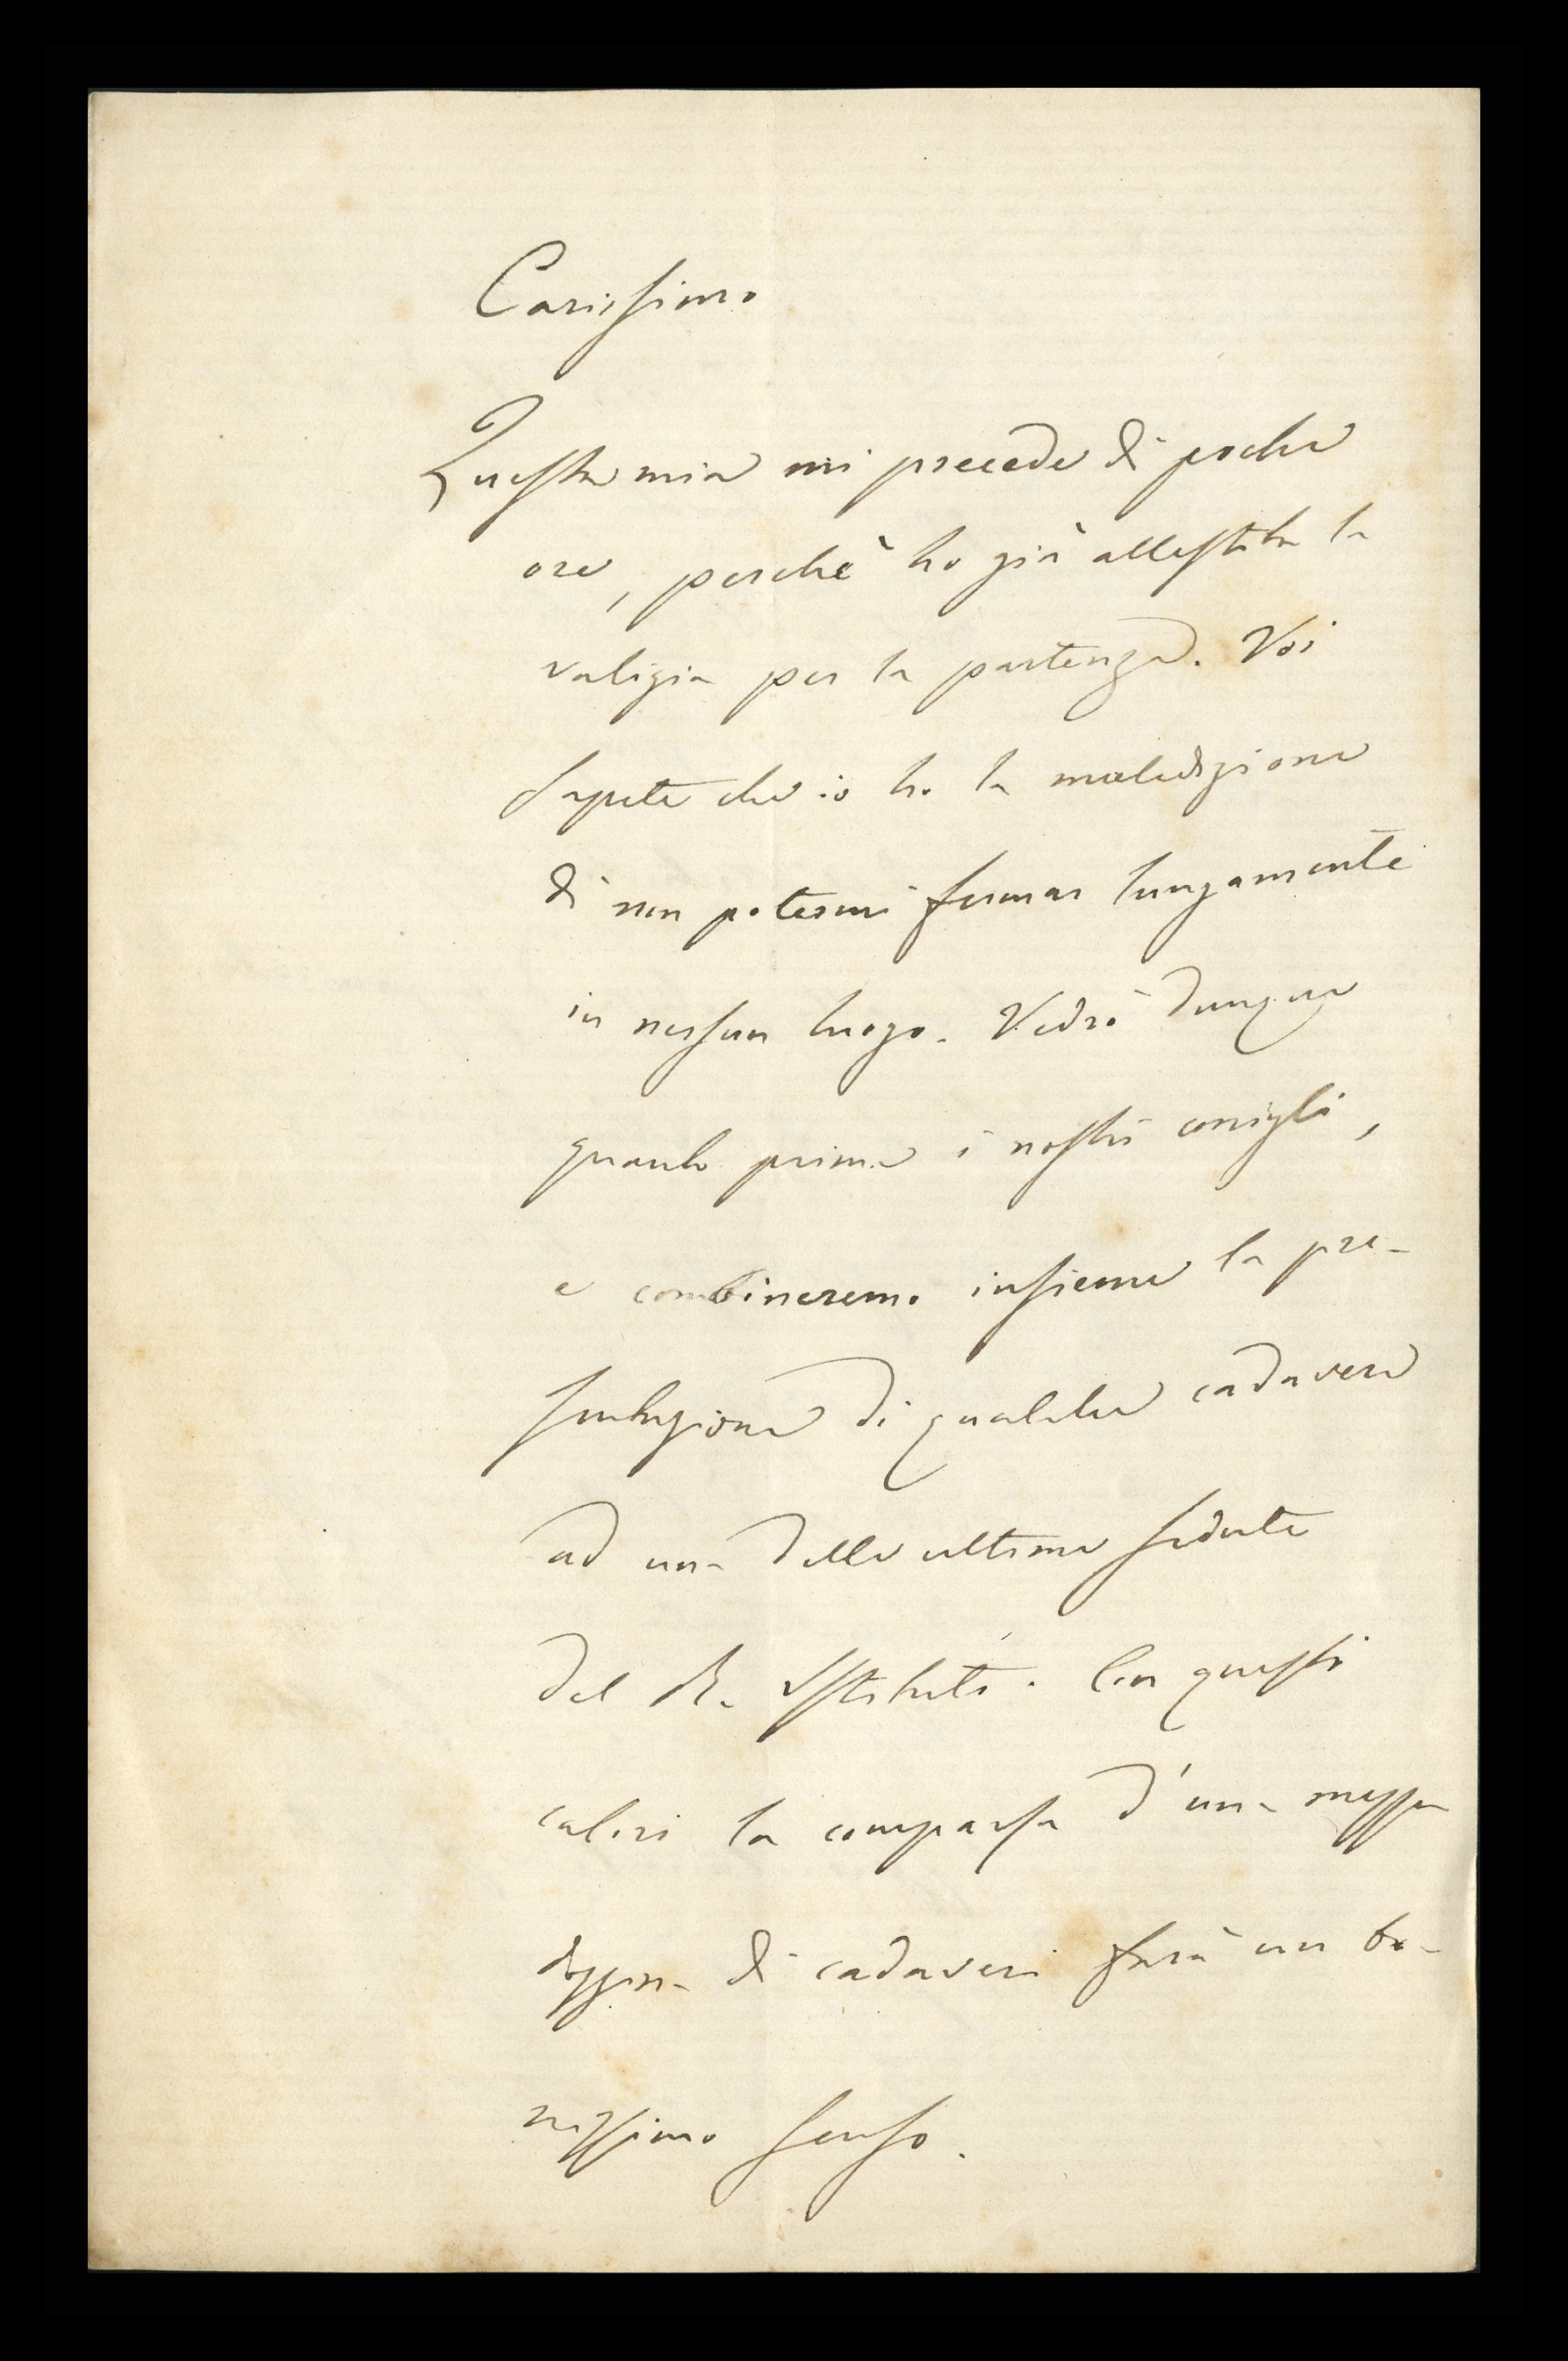 Carissimo
Questa mia mi precede di poche
ore, perchè ho già allestita la
valigia per la partenza. Voi
sapete che io ho la maledizione
di non potermi fermar lungamente
in nessun luogo. Vedrò dunque
quanto prima i nostri conigli,
e combineremo insieme la pre-
sentazione di qualche cadavere
ad una delle ultime sedute
del R. Istituto. Con questi
calori la comparsa d'una mezza
dozzina di cadaveri farà un bo-
nissimo senso.